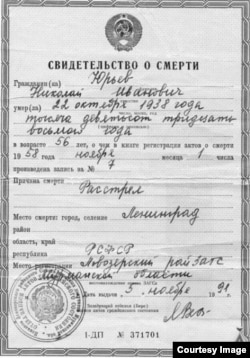 СВИДЕТЕЛЬСТВО О СМЕРТИ
Гражданин(ка) Юрьев
Николай Иванович
умер(ла) 22 октября 1938 года
тысяча девятьсот тридцать
восьмого года
в возрасте 56 лет, о чем в книге регистрации актов о смерти
1958 года ноября месяца 1 числа
произведена запись за № 7
Причина смерти Расстрел
Место смерти: город, селение Ленинград
район
область, край
республика РСФСР
Место регистрации Ловозерский райЗАГС
Мурманской области
Дата выдачи 5 ноября 1991
I-ДП № 371701
Courtesy Image